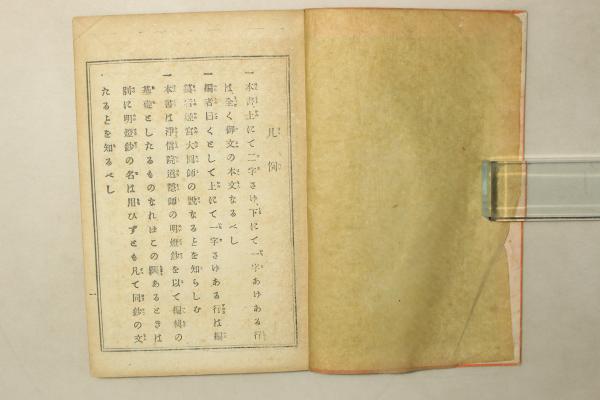 凡例
一 本書上にて二字さけ、下にて一字あけある行
は全く御文の本文なるべし
一 編者曰くとして上にて一字さけある行は編
者大圓師の說なるとを知らしむ
一 本書は淨信院道隱師の明燈鈔を以て編輯の
基礎としたるものなれはこの あるときは
別に明燈鈔の名は用ひずとも凡て同鈔の文
たるとを知るべし
一